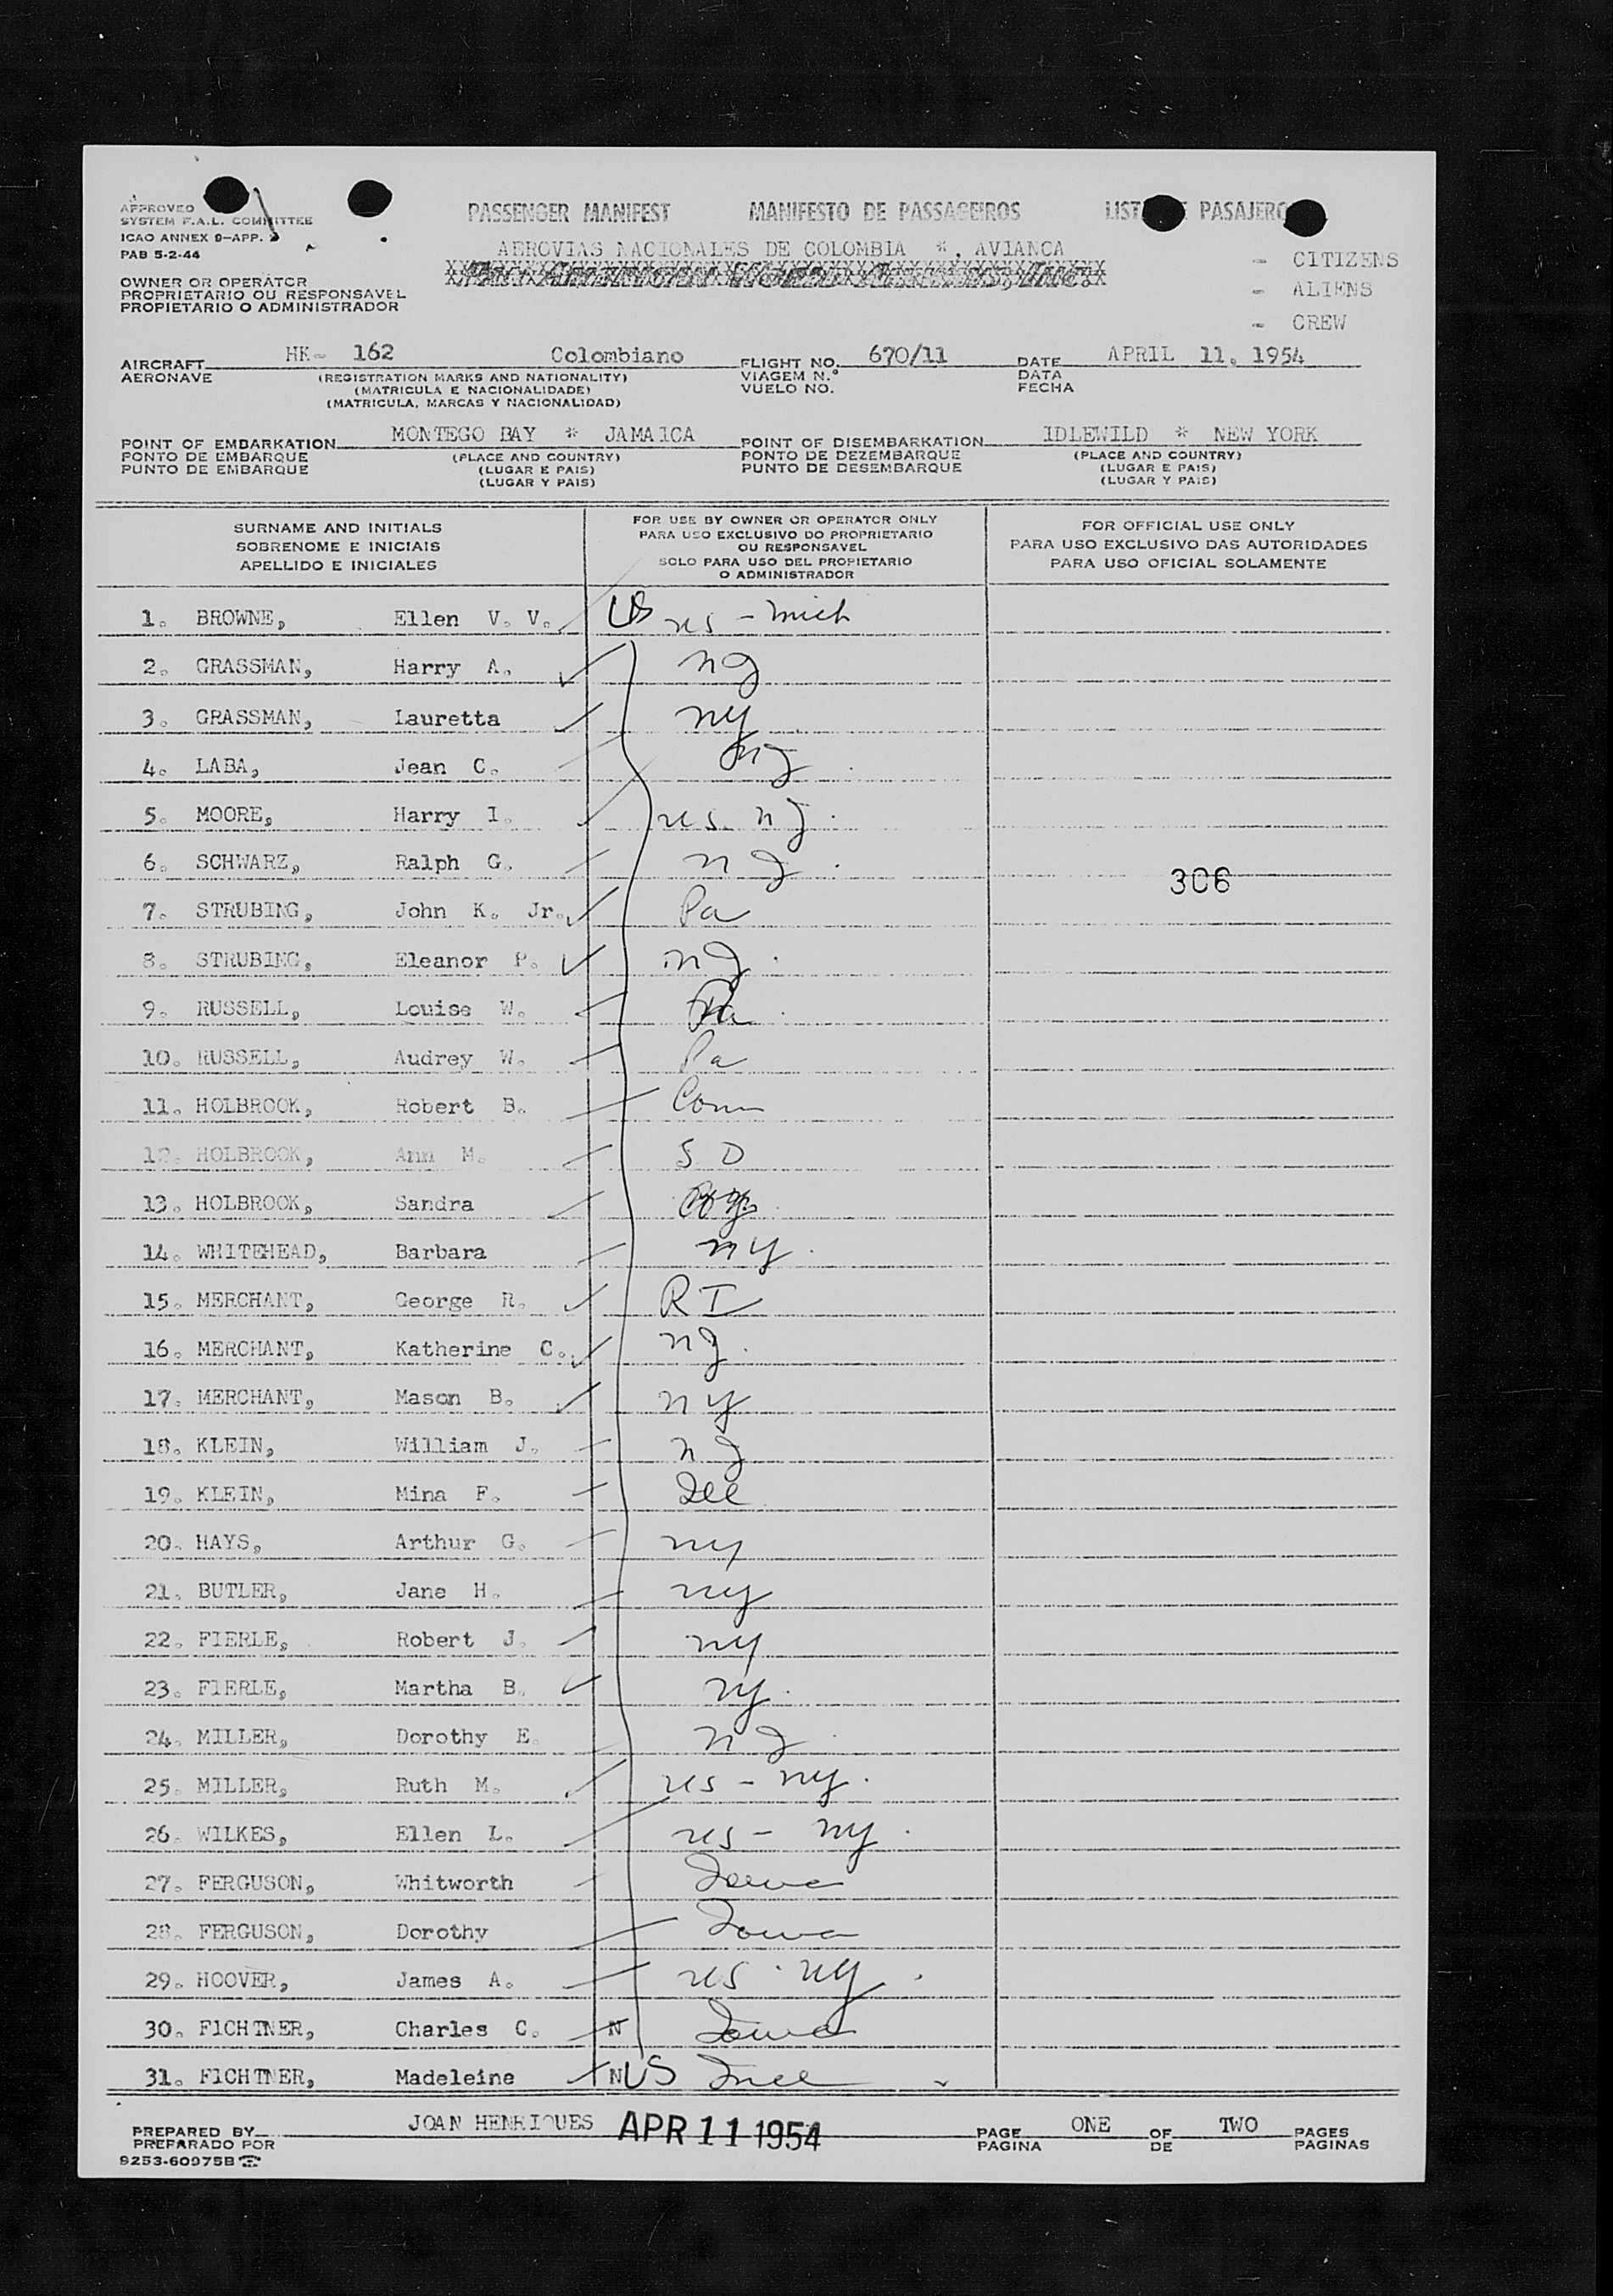 APPROVED
SYSTEM F.A.L. COMMITTEE
ICAO ANNEX 9-APP.
PAB 5-2-44
PASSENGER MANIFEST MANIFESTO DE PASSAGEIROS LISTA DE PASAJEROS
AEROVIAS NACIONALES DE COLOMBIA *, AVIANCA
Pan American World Airways, Inc.
- CITIZENS
- ALIENS
- CREW
OWNER OR OPERATOR
PROPRIETARIO OU RESPONSAVEL
PROPIETARIO O ADMINISTRADOR
AIRCRAFT HK- 162 Colombiano FLIGHT NO. 670/11 DATE APRIL 11, 1954
AERONAVE (REGISTRATION MARKS AND NATIONALITY) VIAGEM N.° DATA
(MATRICULA E NACIONALIDADE) VUELO NO. FECHA
(MATRICULA, MARCAS Y NACIONALIDAD)
POINT OF EMBARKATION MONTEGO BAY * JAMAICA POINT OF DISEMBARKATION IDLEWILD * NEW YORK
PONTO DE EMBARQUE (PLACE AND COUNTRY) PONTO DE DEZEMBARQUE (PLACE AND COUNTRY)
PUNTO DE EMBARQUE (LUGAR E PAIS) PUNTO DE DESEMBARQUE (LUGAR E PAIS)
(LUGAR Y PAIS) (LUGAR Y PAIS)
SURNAME AND INITIALS
SOBRENOME E INICIAIS
APELLIDO E INICIALES
FOR USE BY OWNER OR OPERATOR ONLY
PARA USO EXCLUSIVO DO PROPRIETARIO
OU RESPONSAVEL
SOLO PARA USO DEL PROPIETARIO
O ADMINISTRADOR
FOR OFFICIAL USE ONLY
PARA USO EXCLUSIVO DAS AUTORIDADES
PARA USO OFICIAL SOLAMENTE
1. BROWNE, Ellen V. V. US res - Mich
2. GRASSMAN, Harry A. NJ
3. GRASSMAN, Lauretta NY
4. LABA, Jean C. NJ
5. MOORE, Harry I. res NJ.
6. SCHWARZ, Ralph G. NJ.
306
7. STRUBING, John K. Jr. Pa
8. STRUBING, Eleanor P. NJ.
9. RUSSELL, Louise W. Pa.
10. RUSSELL, Audrey W. Pa
11. HOLBROOK, Robert B. Conn
12. HOLBROOK, Ann M. S D
13. HOLBROOK, Sandra
14. WHITEHEAD, Barbara NY.
15. MERCHANT, George R. R I
16. MERCHANT, Katherine C. NJ.
17. MERCHANT, Mason B. NY
18. KLEIN, William J. NJ
19. KLEIN, Mina F. Ill
20. HAYS, Arthur G. NY
21. BUTLER, Jane H. NY
22. FIERLE, Robert J. NY
23. FIERLE, Martha B. NY.
24. MILLER, Dorothy E. NJ
25. MILLER, Ruth M. res - NY.
26. WILKES, Ellen L. res - NY.
27. FERGUSON, Whitworth Iowa
28. FERGUSON, Dorothy Iowa
29. HOOVER, James A. res. NY.
30. FICHTNER, Charles C. N Iowa
31. FICHTNER, Madeleine N US
PREPARED BY JOAN HENRIQUES APR 11 1954 PAGE ONE OF TWO PAGES
PREPARADO POR PAGINA DE PAGINAS
9253-60975B